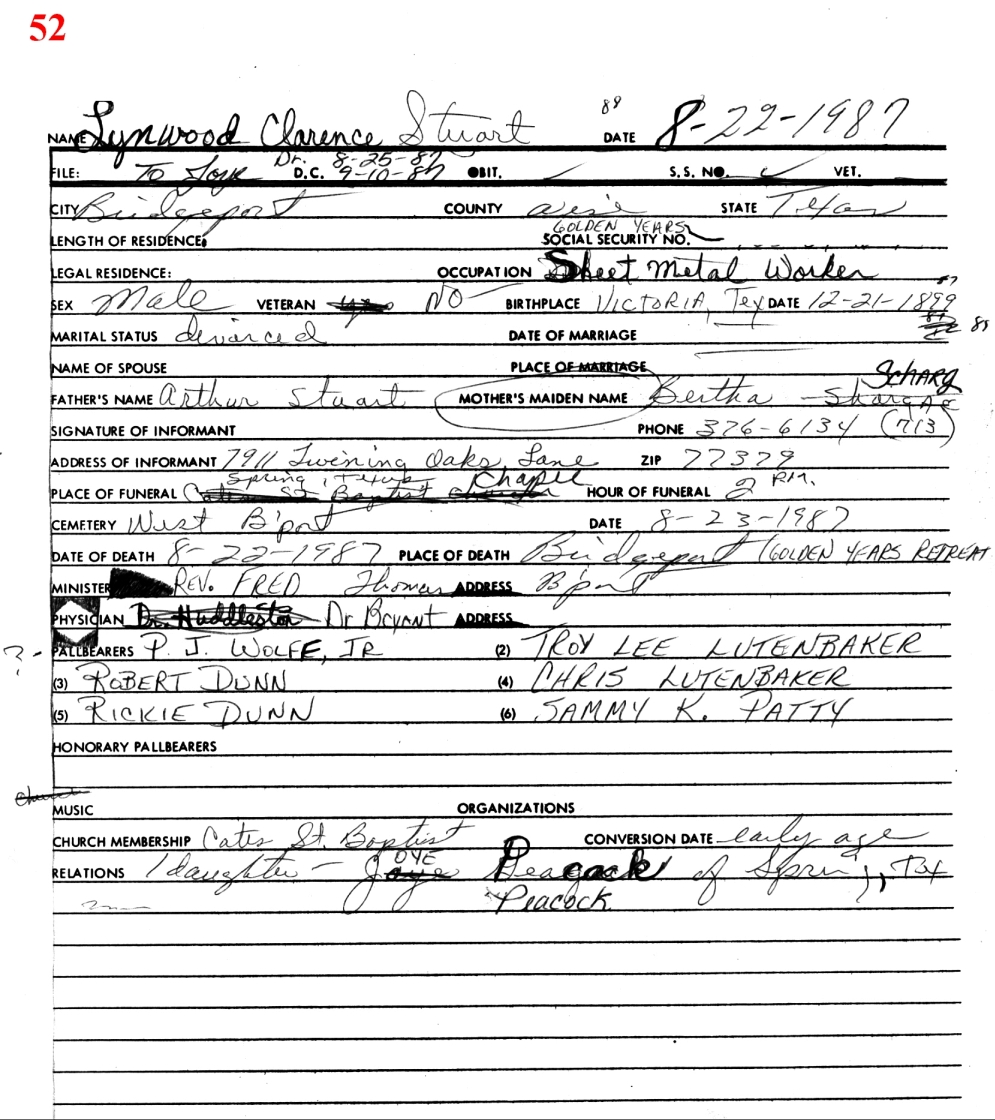 52
89
NAME Lynwood Clarence Stuart DATE 8-22-1987
FILE: To Joye Dr. 8-25-87 D.C. 9-10-87 OBIT. S.S. NO. VET.
CITY Bridgeport COUNTY Wise STATE Texas
GOLDEN YEARS
LENGTH OF RESIDENCE: SOCIAL SECURITY NO.
LEGAL RESIDENCE: OCCUPATION Sheet Metal Worker
SEX Male VETERAN NO BIRTHPLACE VICTORIA, Tex DATE 12-21-1899
MARITAL STATUS divorced DATE OF MARRIAGE
NAME OF SPOUSE PLACE OF MARRIAGE
FATHER'S NAME Arthur Stuart MOTHER'S MAIDEN NAME Bertha
SIGNATURE OF INFORMANT PHONE 376-6134 (713)
ADDRESS OF INFORMANT 7911 Twining Oaks Lane ZIP 77379
Spring, Texas
PLACE OF FUNERAL Cates St Baptist Chapel HOUR OF FUNERAL 2 P.M.
CEMETERY West B'port DATE 8-23-1987
DATE OF DEATH 8-22-1987 PLACE OF DEATH Bridgeport (GOLDEN YEARS RETREAT
MINISTER REV. FRED Thomas ADDRESS B'port
PHYSICIAN Dr. Huddleston Dr Bryant ADDRESS
? - PALLBEARERS P. J. WOLFE, JR (2) TROY LEE LUTENBAKER
(3) ROBERT DUNN (4) CHRIS LUTENBAKER
(5) RICKIE DUNN (6) SAMMY K. PATTY
HONORARY PALLBEARERS
Church
MUSIC ORGANIZATIONS
CHURCH MEMBERSHIP Cates St. Baptist CONVERSION DATE early age
RELATIONS 1 daughter - Joye OYE Peacock of Spring, Tex
Peacock